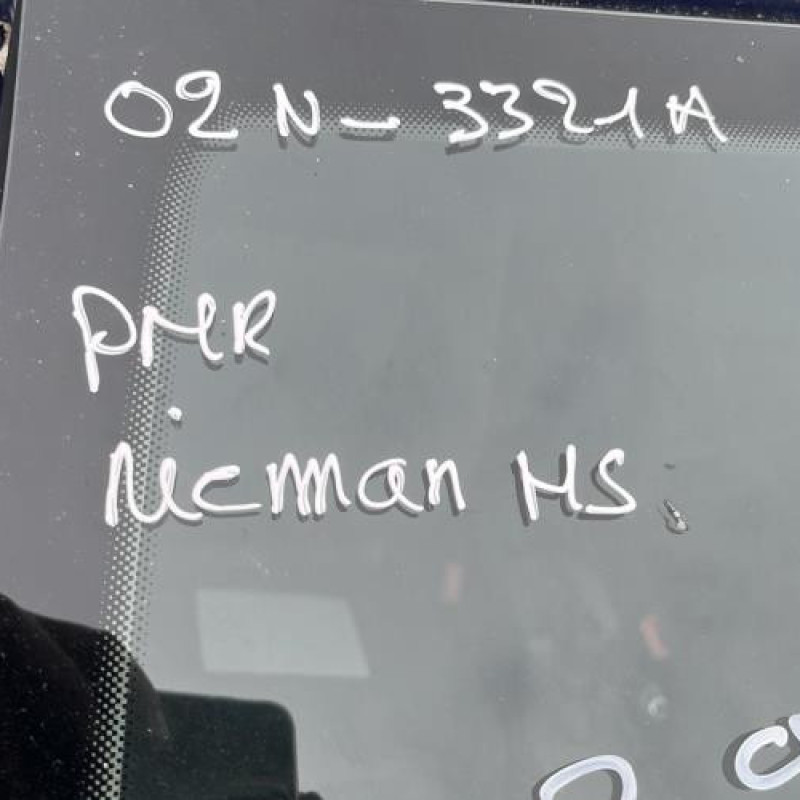 02N-3321A
PMR
Nicman MS.